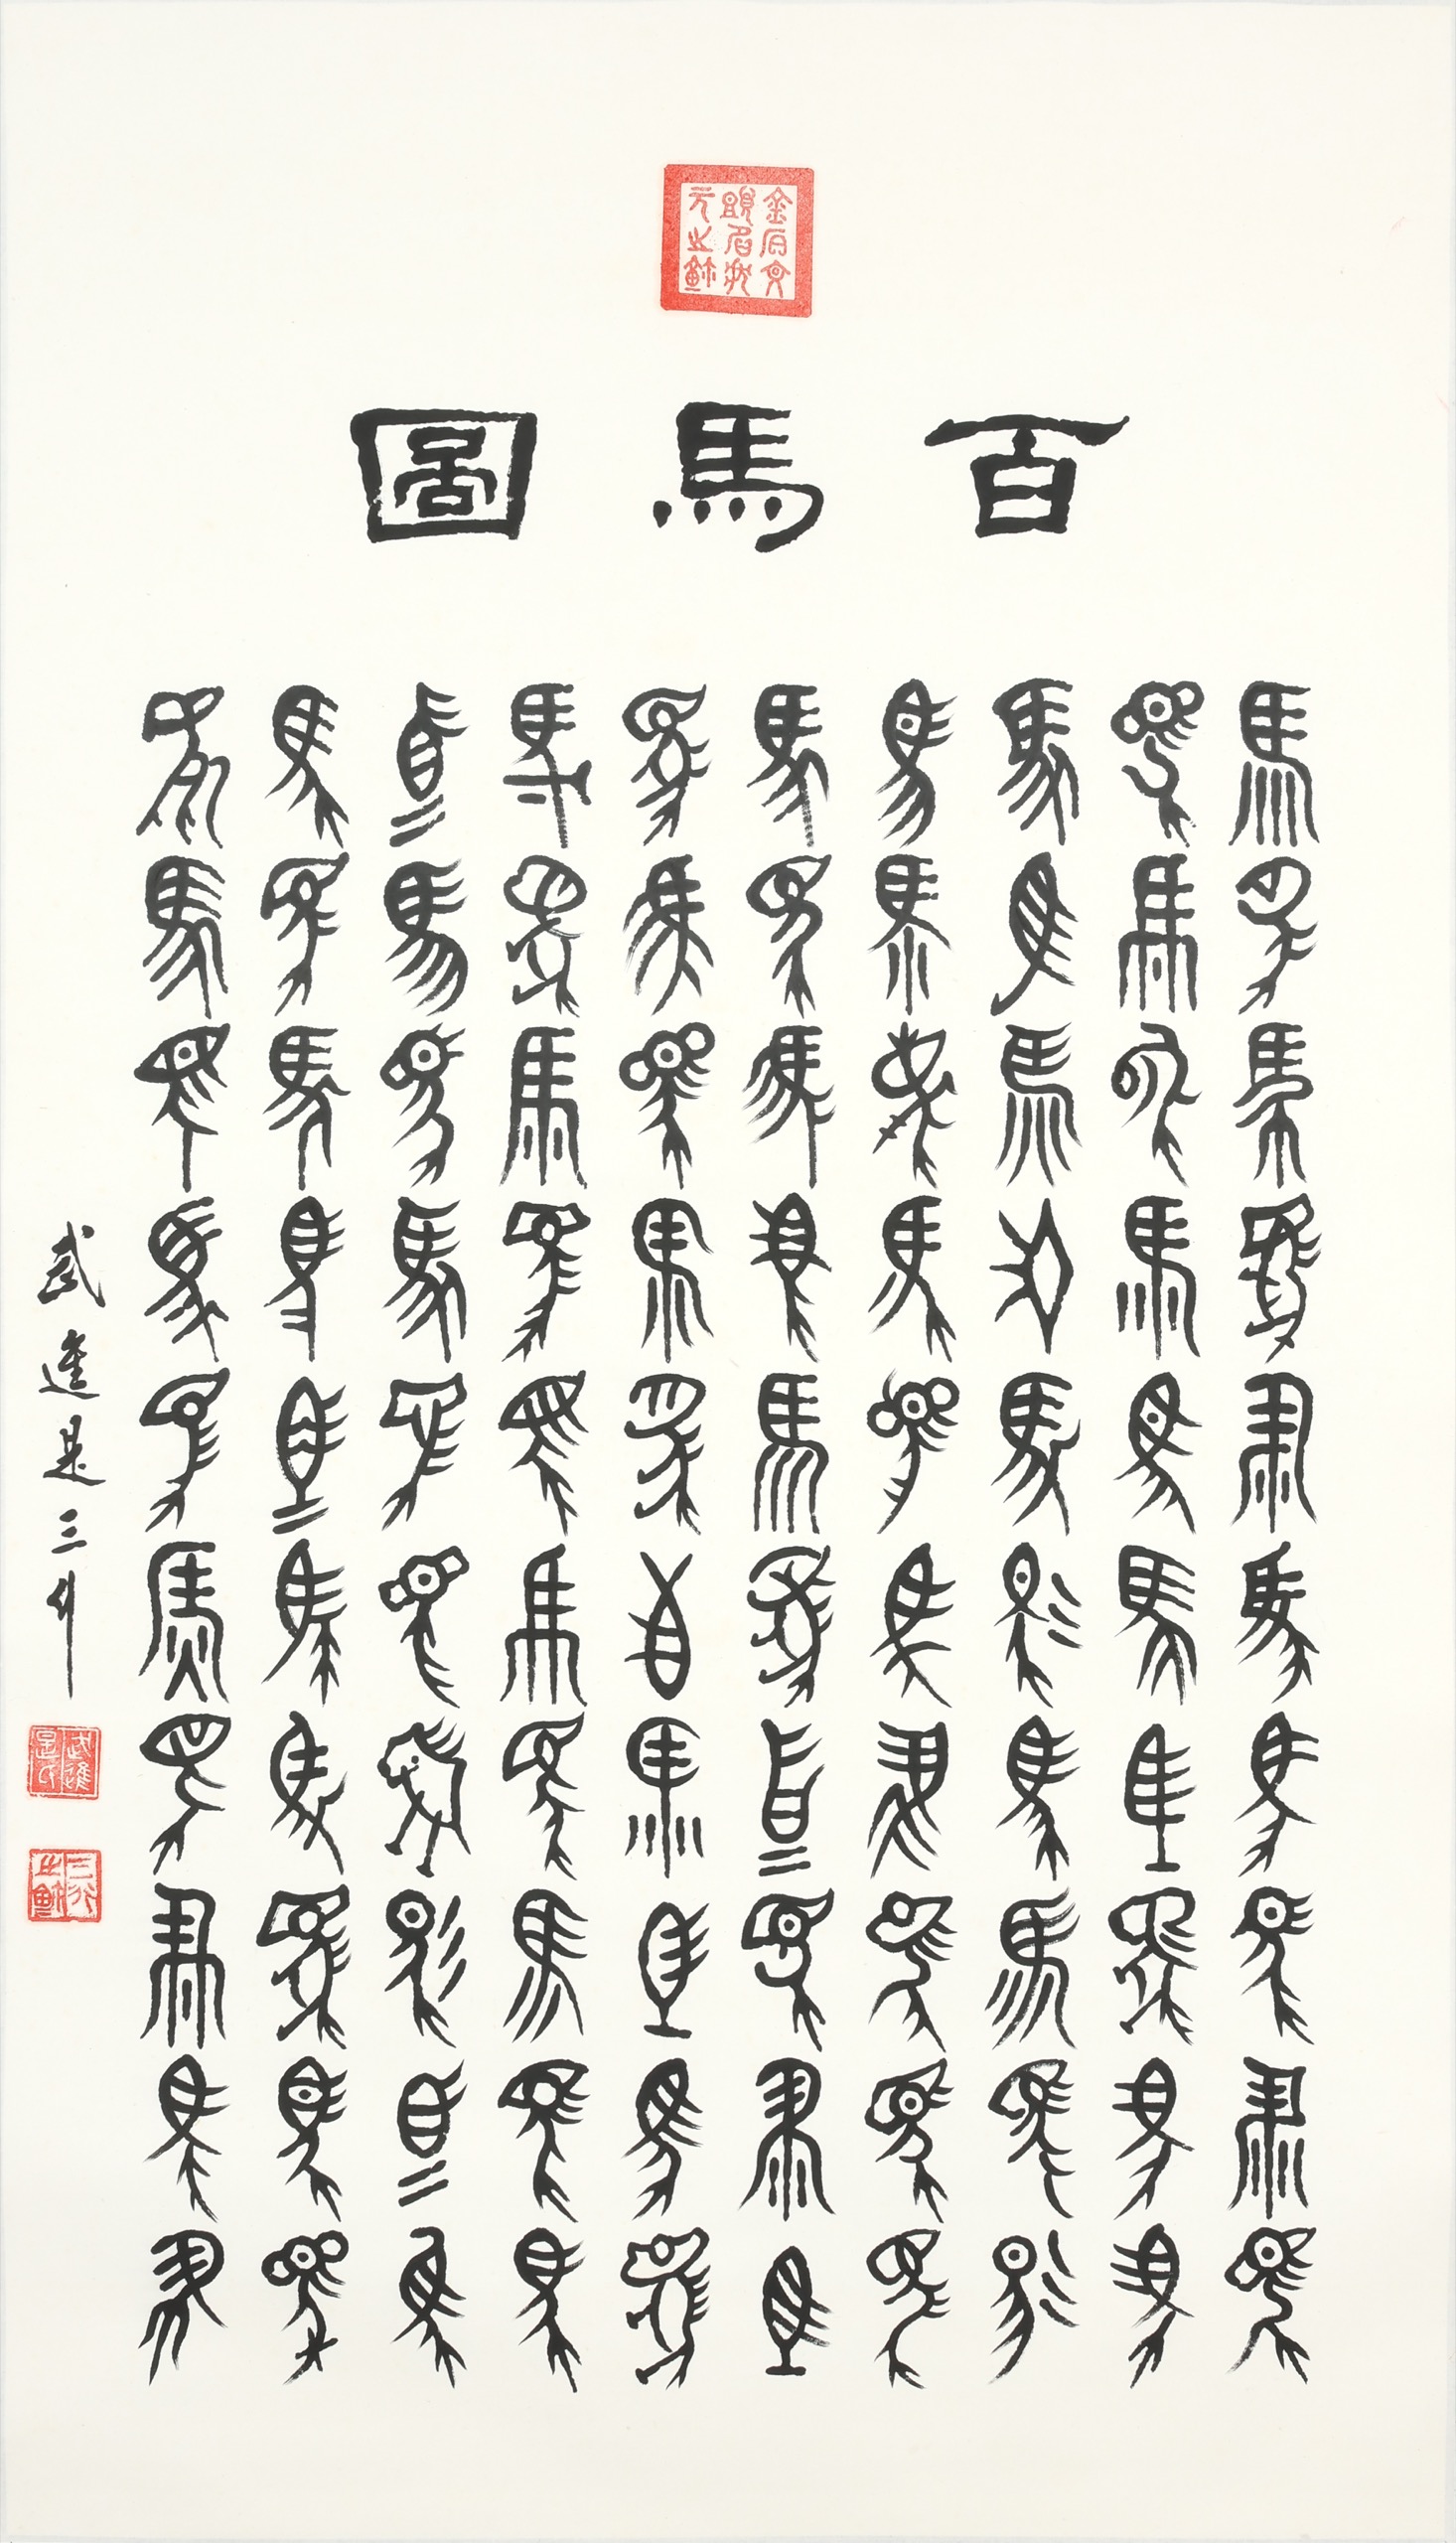 百馬圖
馬馬馬馬馬馬馬馬馬馬
馬馬馬馬馬馬馬馬馬馬
馬馬馬馬馬馬馬馬馬馬
馬馬馬馬馬馬馬馬馬馬
馬馬馬馬馬馬馬馬馬馬
馬馬馬馬馬馬馬馬馬馬
馬馬馬馬馬馬馬馬馬馬
馬馬馬馬馬馬馬馬馬馬
馬馬馬馬馬馬馬馬馬馬
馬馬馬馬馬馬馬馬馬馬
武進是三行
武進是氏
三行之鉨